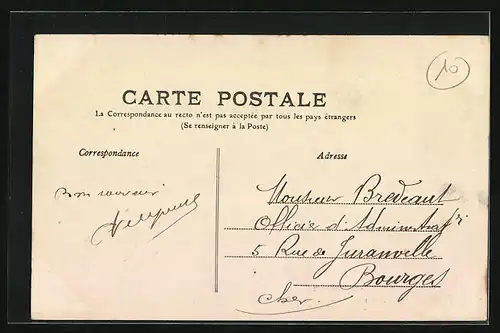 10
CARTE POSTALE
La Correspondance au recto n'est pas acceptée par tous les pays étrangers
(Se renseigner à la Poste)
Correspondance
Adresse
Bon souvenir
Monsieur Bredeaut
Officier d'Administrat
5 Rue de Juranville
Bourges
Cher